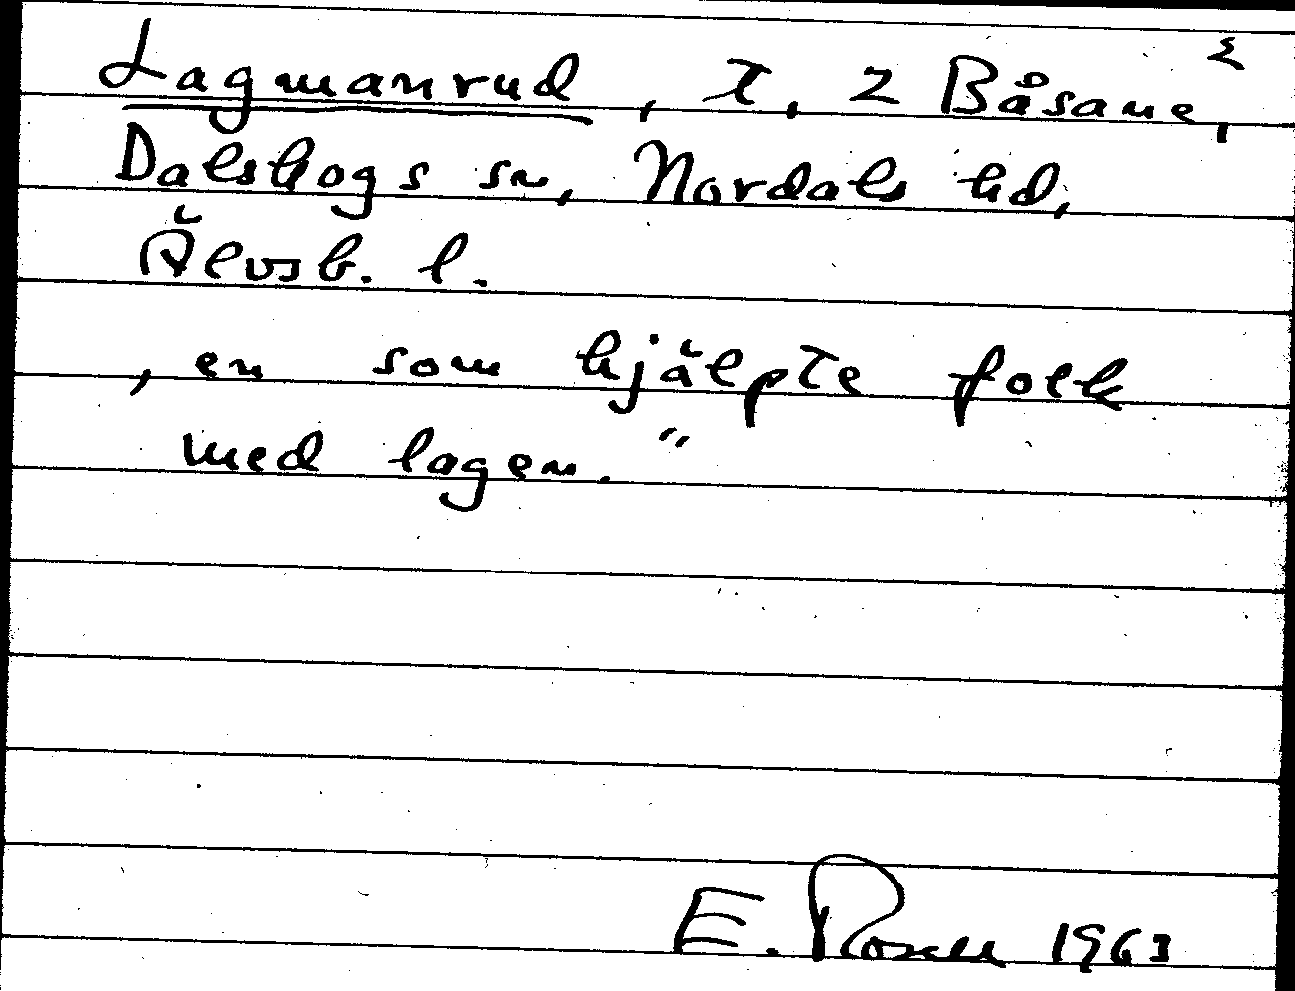 Lagmanrud, t, 2 Båsane, 2
Dalskogs sn, Nordals hd,
Älvsb. l.
„ en som hjälpte folk
med lagen."
E. Rosell 1963